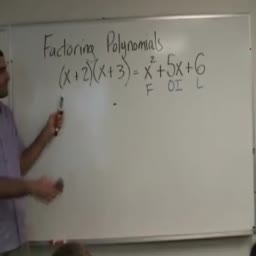 Factoring Polynomials
(x+2)(x+3) = x²+5x+6
F OI L